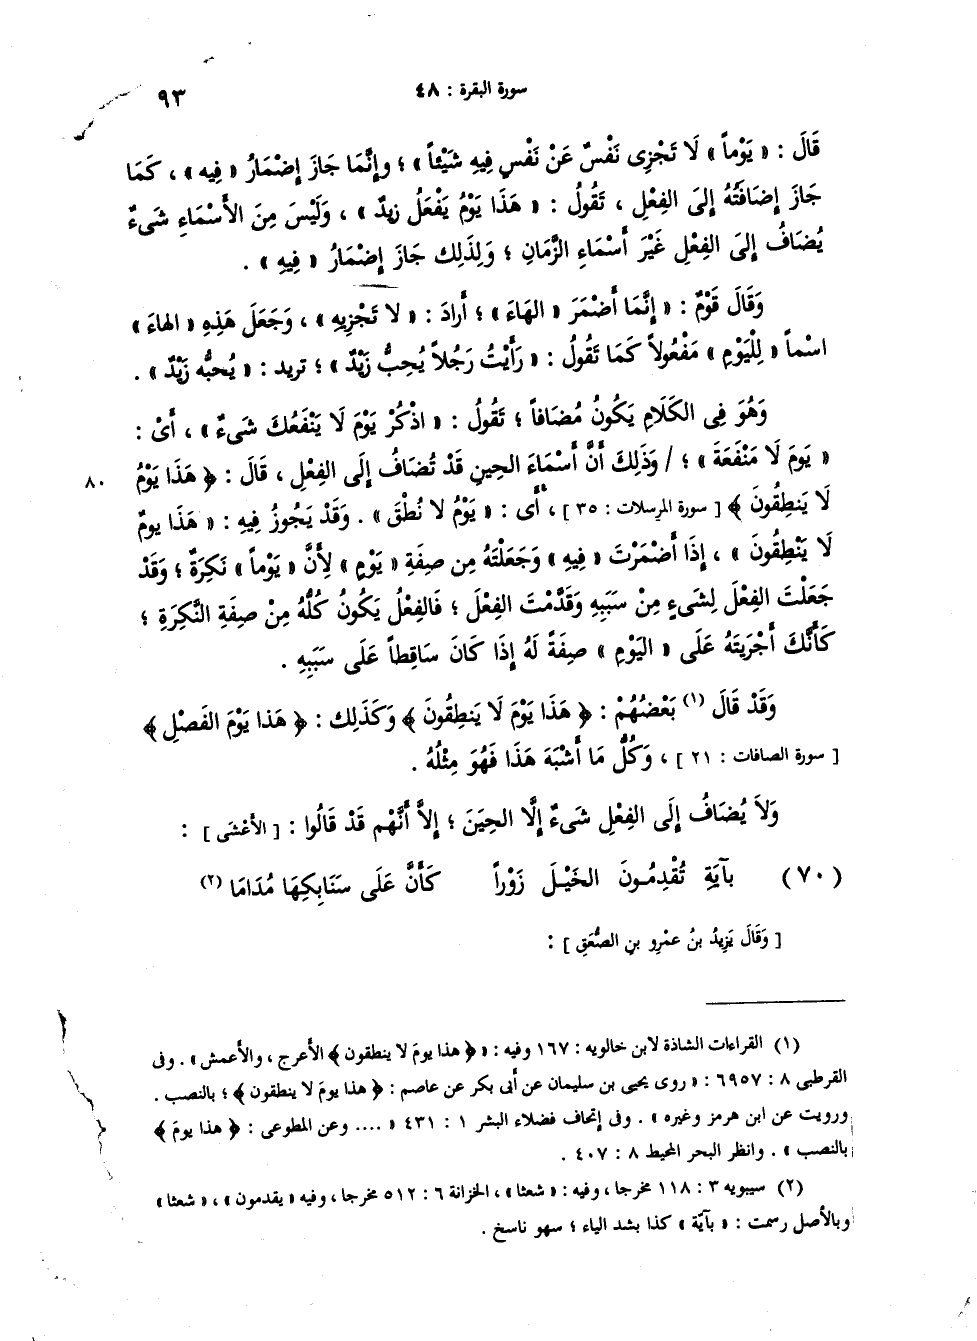 سورة البقرة : ٤٨
٩٣
قَالَ : « يَوْماً » لَا تَجْزِى نَفْسٌ عَنْ نَفْسٍ فِيهِ شَيْئاً » ؛ وإنَّمَا جَازَ إضْمَارُ « فِيه » ، كَمَا
جَازَ إضَافَتُهُ إلىَ الفِعْلِ ، تَقُولُ : « هَذَا يَوْمُ يَفْعَلُ زيدٌ » ، وَلَيْسَ مِنَ الأَسْمَاءِ شَىءٌ
يُضَافُ إلىَ الفِعْلِ غَيْرَ أَسْمَاءِ الزَّمَانِ ؛ وَلِذَلِكَ جَازَ إضْمَارُ « فِيهِ » .
وَقَالَ قَوْمٌ : « إنَّمَا أَضْمَرَ « الهَاءَ » ؛ أَرادَ : « لا تَجْزِيهِ » ، وَجَعَلَ هَذِهِ « الهاءَ »
اسْماً « لِلْيَوْمِ » مَفْعُولاً كَمَا تَقُولُ : « رَأَيْتُ رَجُلاً يُحِبُّ زَيْدٌ » ؛ تريد : « يُحبُّه زَيْدٌ » .
وَهُوَ فِى الكَلَامِ يَكُونُ مُضَافاً ؛ تَقُولُ : « اذْكُرْ يَوْمَ لَا يَنْفَعُكَ شَىءٌ » ، أَىْ :
« يَومَ لَا مَنْفَعَةَ » ؛ / وَذَلِكَ أَنَّ أَسْمَاءَ الحِينِ قَدْ تُضَافُ إلَى الفِعْلِ ، قَالَ : ﴿ هَذَا يَوْمُ
٨٠
لَا يَنطِقُونَ ﴾ [ سورة المرسلات : ٣٥ ] ، أَى : « يَوْمُ لا نُطْقَ » . وَقَدْ يَجُوزُ فِيهِ : « هَذَا يومٌ
لَا يَنْطِقُونَ » ، إذَا أَضْمَرْتَ « فِيهِ » وَجَعَلْتَهُ مِن صِفَةِ « يَوْمٍ » لِأَنَّ « يَوْماً » نَكِرَةٌ ؛ وَقَدْ
جَعَلْتَ الفِعْلَ لِشَىءٍ مِنْ سَبَبِهِ وَقَدَّمْتَ الفِعْلَ ؛ فَالفِعْلُ يَكُونُ كُلُّهُ مِنْ صِفَةِ النَّكِرَةِ ؛
كَأَنَّكَ أَجْرَيْتَهُ عَلَى « اليَوْمِ » صِفَةً لَهُ إذَا كَانَ سَاقِطاً عَلَى سَبَبِهِ .
وَقَدْ قَالَ (١) بَعْضُهُمْ : ﴿ هَذَا يَوْمَ لَا يَنطِقُونَ ﴾ وَكَذَلِكَ : ﴿ هَذا يَوْمَ الفَصْلِ ﴾
[ سورة الصافات : ٢١ ] ، وَكُلُّ مَا أَشْبَهَ هَذَا فَهُوَ مِثْلُهُ .
وَلاَ يُضَافُ إلَى الفِعْلِ شَىءٌ إلَّا الحِيَنَ ؛ إلاَّ أَنَّهُم قَدْ قَالُوا : [ الأعْشَى ] :
(٧٠) بآيَةِ تُقْدِمُـونَ الخَيْـلَ زَوْراً كَأَنَّ عَلَى سَنَابِكِهَا مُدَامَا (٢)
[ وَقَالَ يَزِيدُ بنُ عمْرِو بنِ الصَّعَقِ ] :
(١) القراءات الشاذة لابن خالويه : ١٦٧ وفيه : « ﴿ هذا يومَ لا ينطقون ﴾ الأعرج ، والأعمش » . وفى
القرطبى ٨ : ٦٩٥٧ : « روى يحيى بن سليمان عن أبى بكر عن عاصم : ﴿ هذا يومَ لا ينطقون ﴾ ؛ بالنصب .
ورويت عن ابن هرمز وغيره » . وفى إتحاف فضلاء البشر ١ : ٤٣١ « .... وعن المطوعى : ﴿ هذا يومَ ﴾
بالنصب » . وانظر البحر المحيط ٨ : ٤٠٧ .
(٢) سيبويه ٣ : ١١٨ مخرجا ، وفيه : « شعثا » ، الخزانة ٦ : ٥١٢ مخرجا ، وفيه « يقدمون » ، « شعثا »
وبالأصل رسمت : « بآيّة » كذا بشد الياء ؛ سهو ناسخ .